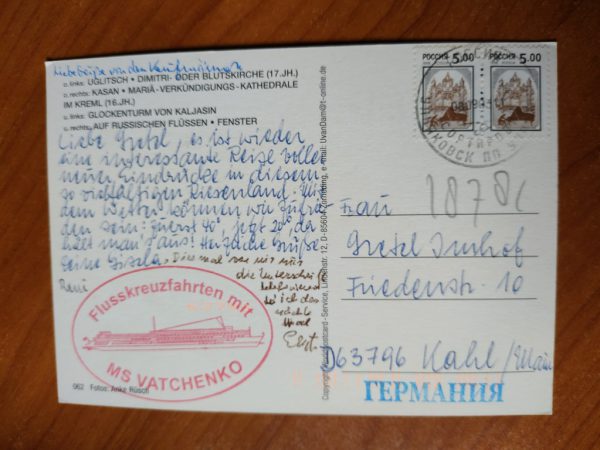 Liebe Grüße von den
o. links: UGLITSCH • DIMITRI- ODER BLUTSKIRCHE (17.JH.)
o. rechts: KASAN • MARIÄ-VERKÜNDIGUNGS-KATHEDRALE
IM KREML (16.JH.)
u. links: GLOCKENTURM VON KALJASIN
u. rechts: AUF RUSSISCHEN FLÜSSEN • FENSTER
Liebe Gretel, es ist wieder
eine interessante Reise voller
neuer Eindrücke in diesem
so vielfältigen Riesenland. Mit
dem Wetter können wir zufrie
den sein. Zuerst 40°, jetzt 20°, da
hält man's aus! Herzliche Grüße
Deine Gisela
Diesmal von mir nur
die Unterschrift
ich das
nächste
Mal
Flusskreuzfahrten mit
MS VATCHENKO
062 Fotos: Anke Rüsch
Postcard-Service, D-85604 Zorneding, e-mail: UvanDam@t-online.de
РОССИЯ 5.00
РОССИЯ 5.00
1878c
Frau
Gretel Imhof
Friedenstr. 10
D63796 Kahl/Main
ГЕРМАНИЯ